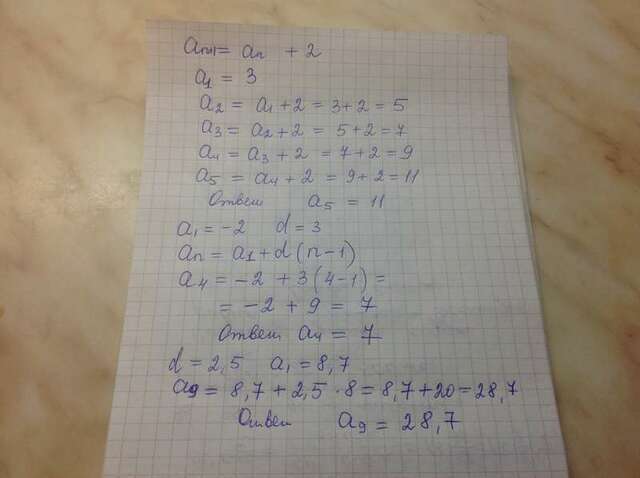 aₙ₊₁ = aₙ + 2
a₁ = 3
a₂ = a₁ + 2 = 3 + 2 = 5
a₃ = a₂ + 2 = 5 + 2 = 7
a₄ = a₃ + 2 = 7 + 2 = 9
a₅ = a₄ + 2 = 9 + 2 = 11
Ответ a₅ = 11
a₁ = -2 d = 3
aₙ = a₁ + d (n - 1)
a₄ = -2 + 3 (4 - 1) =
= -2 + 9 = 7
Ответ a₄ = 7
d = 2,5 a₁ = 8,7
a₉ = 8,7 + 2,5 · 8 = 8,7 + 20 = 28,7
Ответ a₉ = 28,7